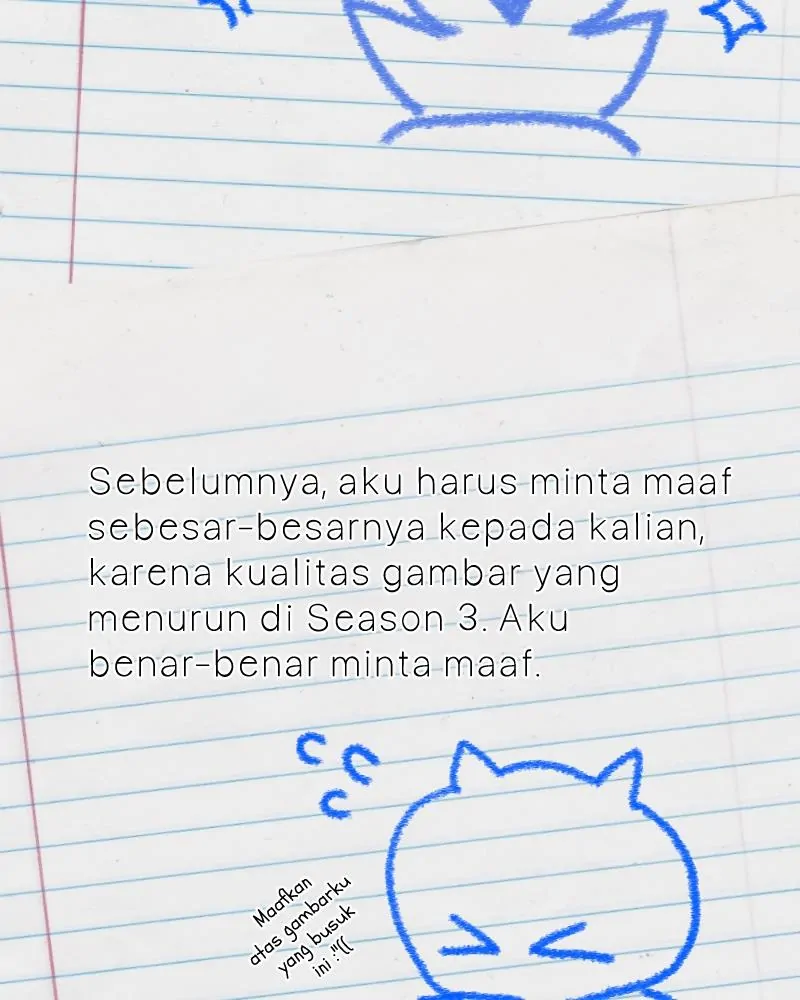 Sebelumnya, aku harus minta maaf
sebesar-besarnya kepada kalian,
karena kualitas gambar yang
menurun di Season 3. Aku
benar-benar minta maaf.
Maafkan
atas gambarku
yang busuk
ini :"((